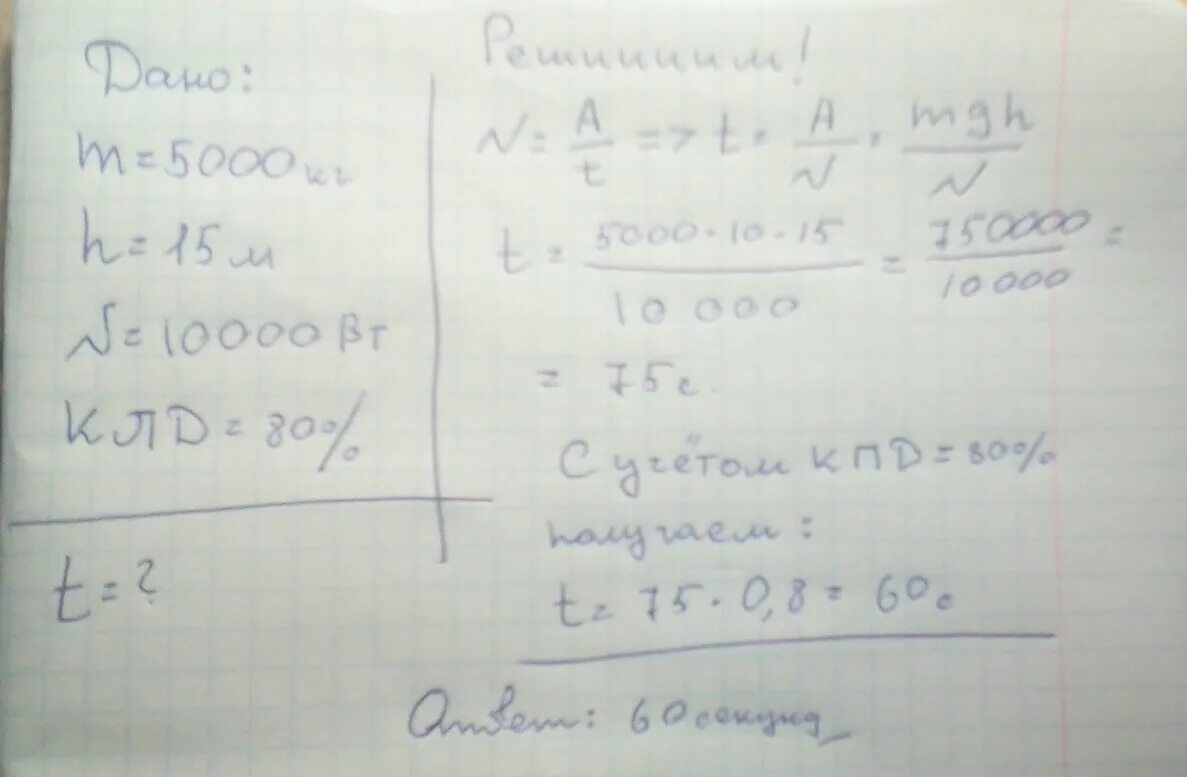 Дано:
m=5000кг
h=15м
N=10000Вт
КПД=80%
t=?
Решииииим!
N= A/t => t= A/N = mgh/N
t= 5000·10·15/10 000 = 750000/10000 =
= 75с.
С учётом КПД=80%
получаем:
t= 75·0,8= 60с
Ответ: 60 секунд